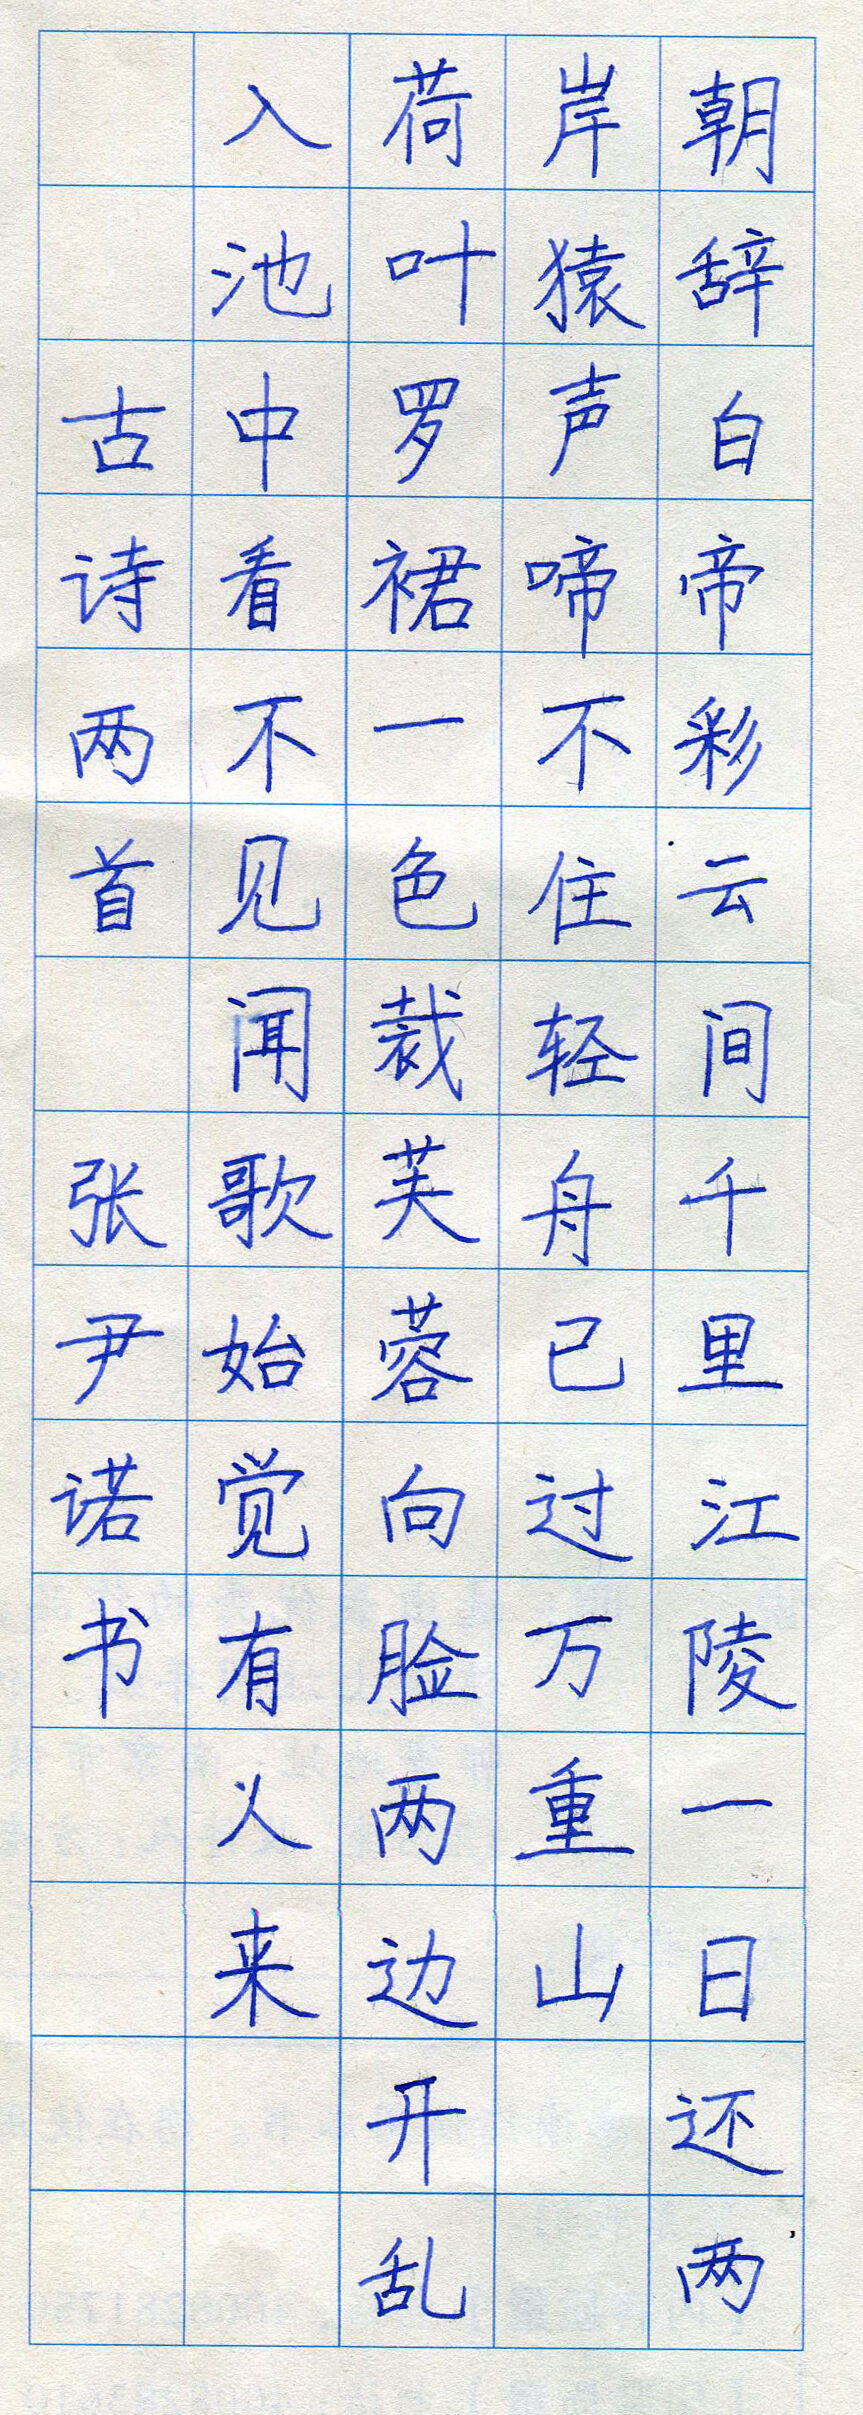 朝辞白帝彩云间千里江陵一日还两
岸猿声啼不住轻舟已过万重山
荷叶罗裙一色裁芙蓉向脸两边开乱
入池中看不见闻歌始觉有人来
古诗两首 张尹诺书